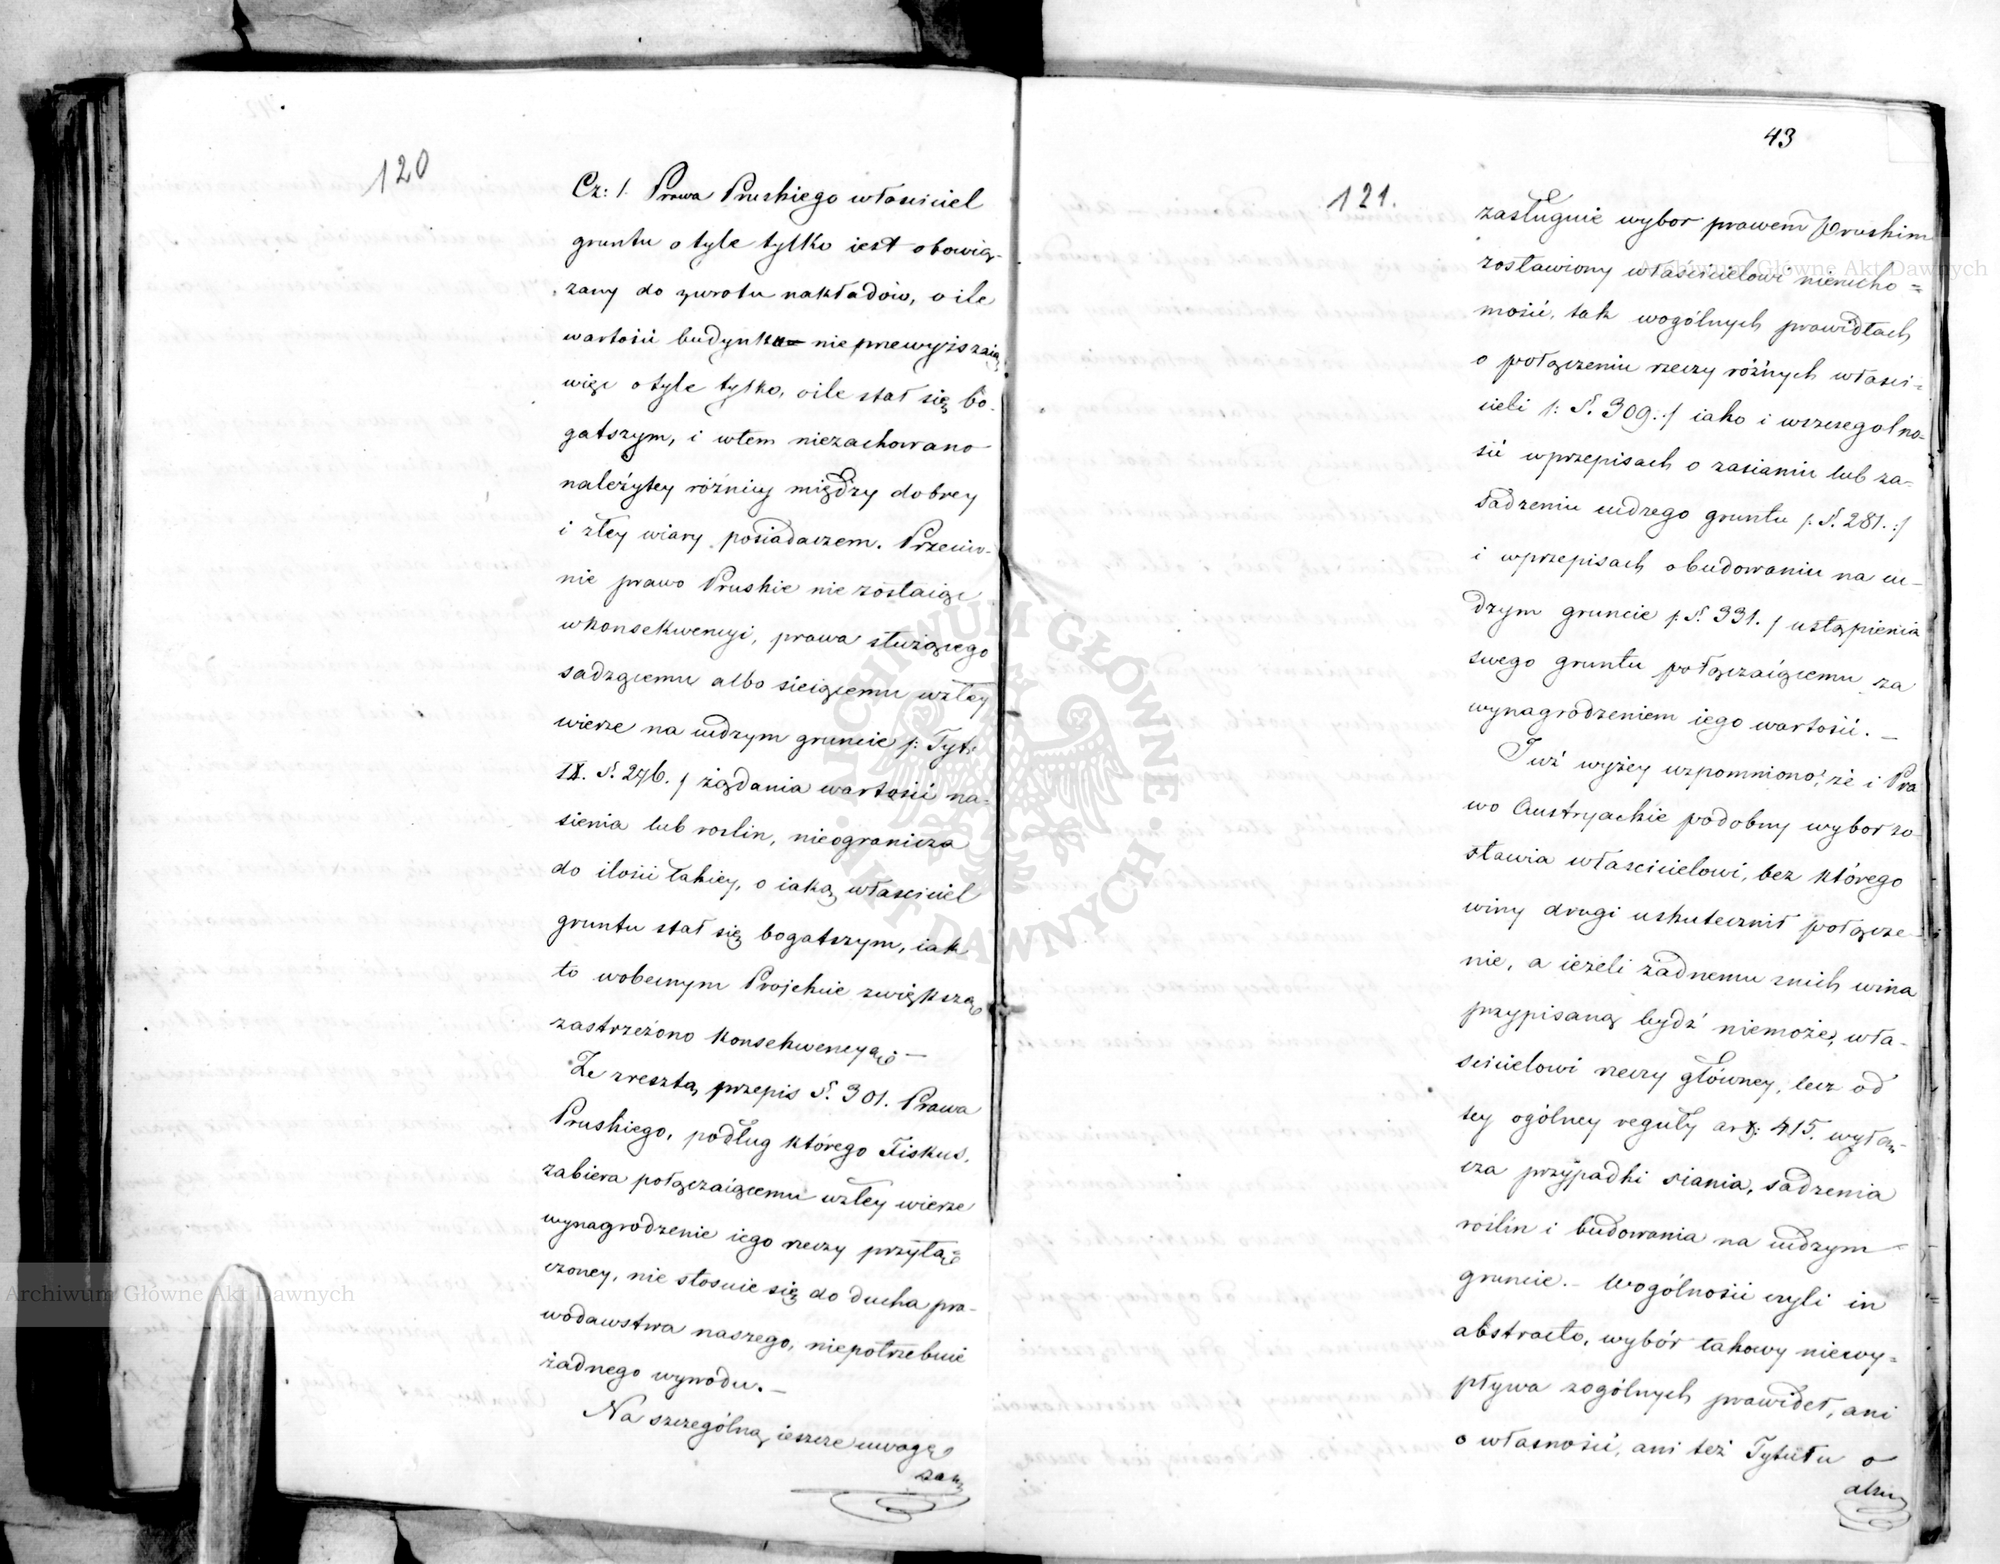 120
Cz: 1. Prawa Pruskiego właściciel
gruntu o tyle tylko iest obowią-
zany do zwrotu nakładów, o ile
wartość budynku nieprzewyższaią
więc o tyle tylko, o ile stał się bo-
gatszym, i wtem niezachowano
należytey różnicy między dobrey
i złey wiary posiadaczem. Przeciw-
nie prawo Pruskie nie zostaiąc
wkonsekwencyi, prawa służącego
sadzącemu albo sieiącemu wzłey
wierze na cudzym gruncie /: Tyt:
IX. §. 276. / żądania wartości na-
sienia lub roslin, nieogranicza
do ilości takiey, o iaką właściciel
gruntu stał się bogatszym, iak
to wobecnym Projekcie zwiększą
zastrzeżono konsekwencyą. —
Ze zresztą przepis §. 301. Prawa
Pruskiego, podług którego Fiskus,
zabiera połączaiącemu wzłey wierze
wynagrodzenie iego rzeczy przyłą-
czoney, nie stosuie się do ducha pra-
wodawstwa naszego, niepotrzebuie
żadnego wywodu. —
Na szczególną ieszcze uwagę
zasł
43
121.
zasługuie wybor prawem Pruskim
zostawiony właścicielowi nierucho=
mości, tak wogólnych prawidłach
o połączeniu rzeczy różnych właści=
cieli /: §. 309. :/ iako i wszczegolno-
ści wprzepisach o zasianiu lub za-
sadzeniu cudzego gruntu /: §. 281. :/
i wprzepisach o budowaniu na cu-
dzym gruncie /: §. 331. / ustąpienia
swego gruntu połączaiącemu za
wynagrodzeniem iego wartości. —
Już wyżey wspomniono, że i Pra
wo Austryackie podobny wybor zo-
stawia właścicielowi, bez którego
winy drugi uskutecznił połącze-
nie, a ieżeli żadnemu znich wina
przypisaną bydź niemoże, wła-
ścicielowi rzeczy główney, lecz od
tey ogólney reguły art: 415. wyłą-
cza przypadki siania, sadzenia
roślin i budowania na cudzym
gruncie. – Wogólności czyli in
abstracto, wybór takowy niewy=
pływa zogólnych prawideł, ani
o własności, ani też Tytułu o
Archiwum Główne Akt Dawnych
Archiwum Główne Akt Dawnych
ARCHIWUM GŁÓWNE AKT DAWNYCH